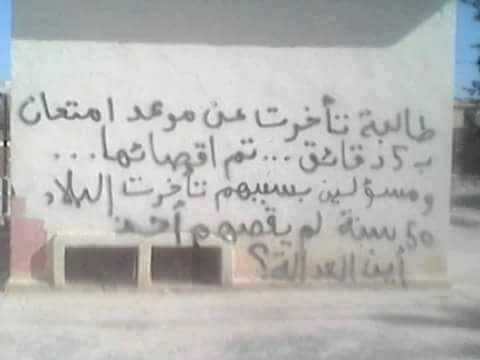 طالبة تأخرت عن موعد امتحان
ب 5 دقائق ... تم اقصائها ...
ومسؤلين بسببهم تأخرت البلاد
50 سنة لم يقصهم أحد
أين العدالة؟